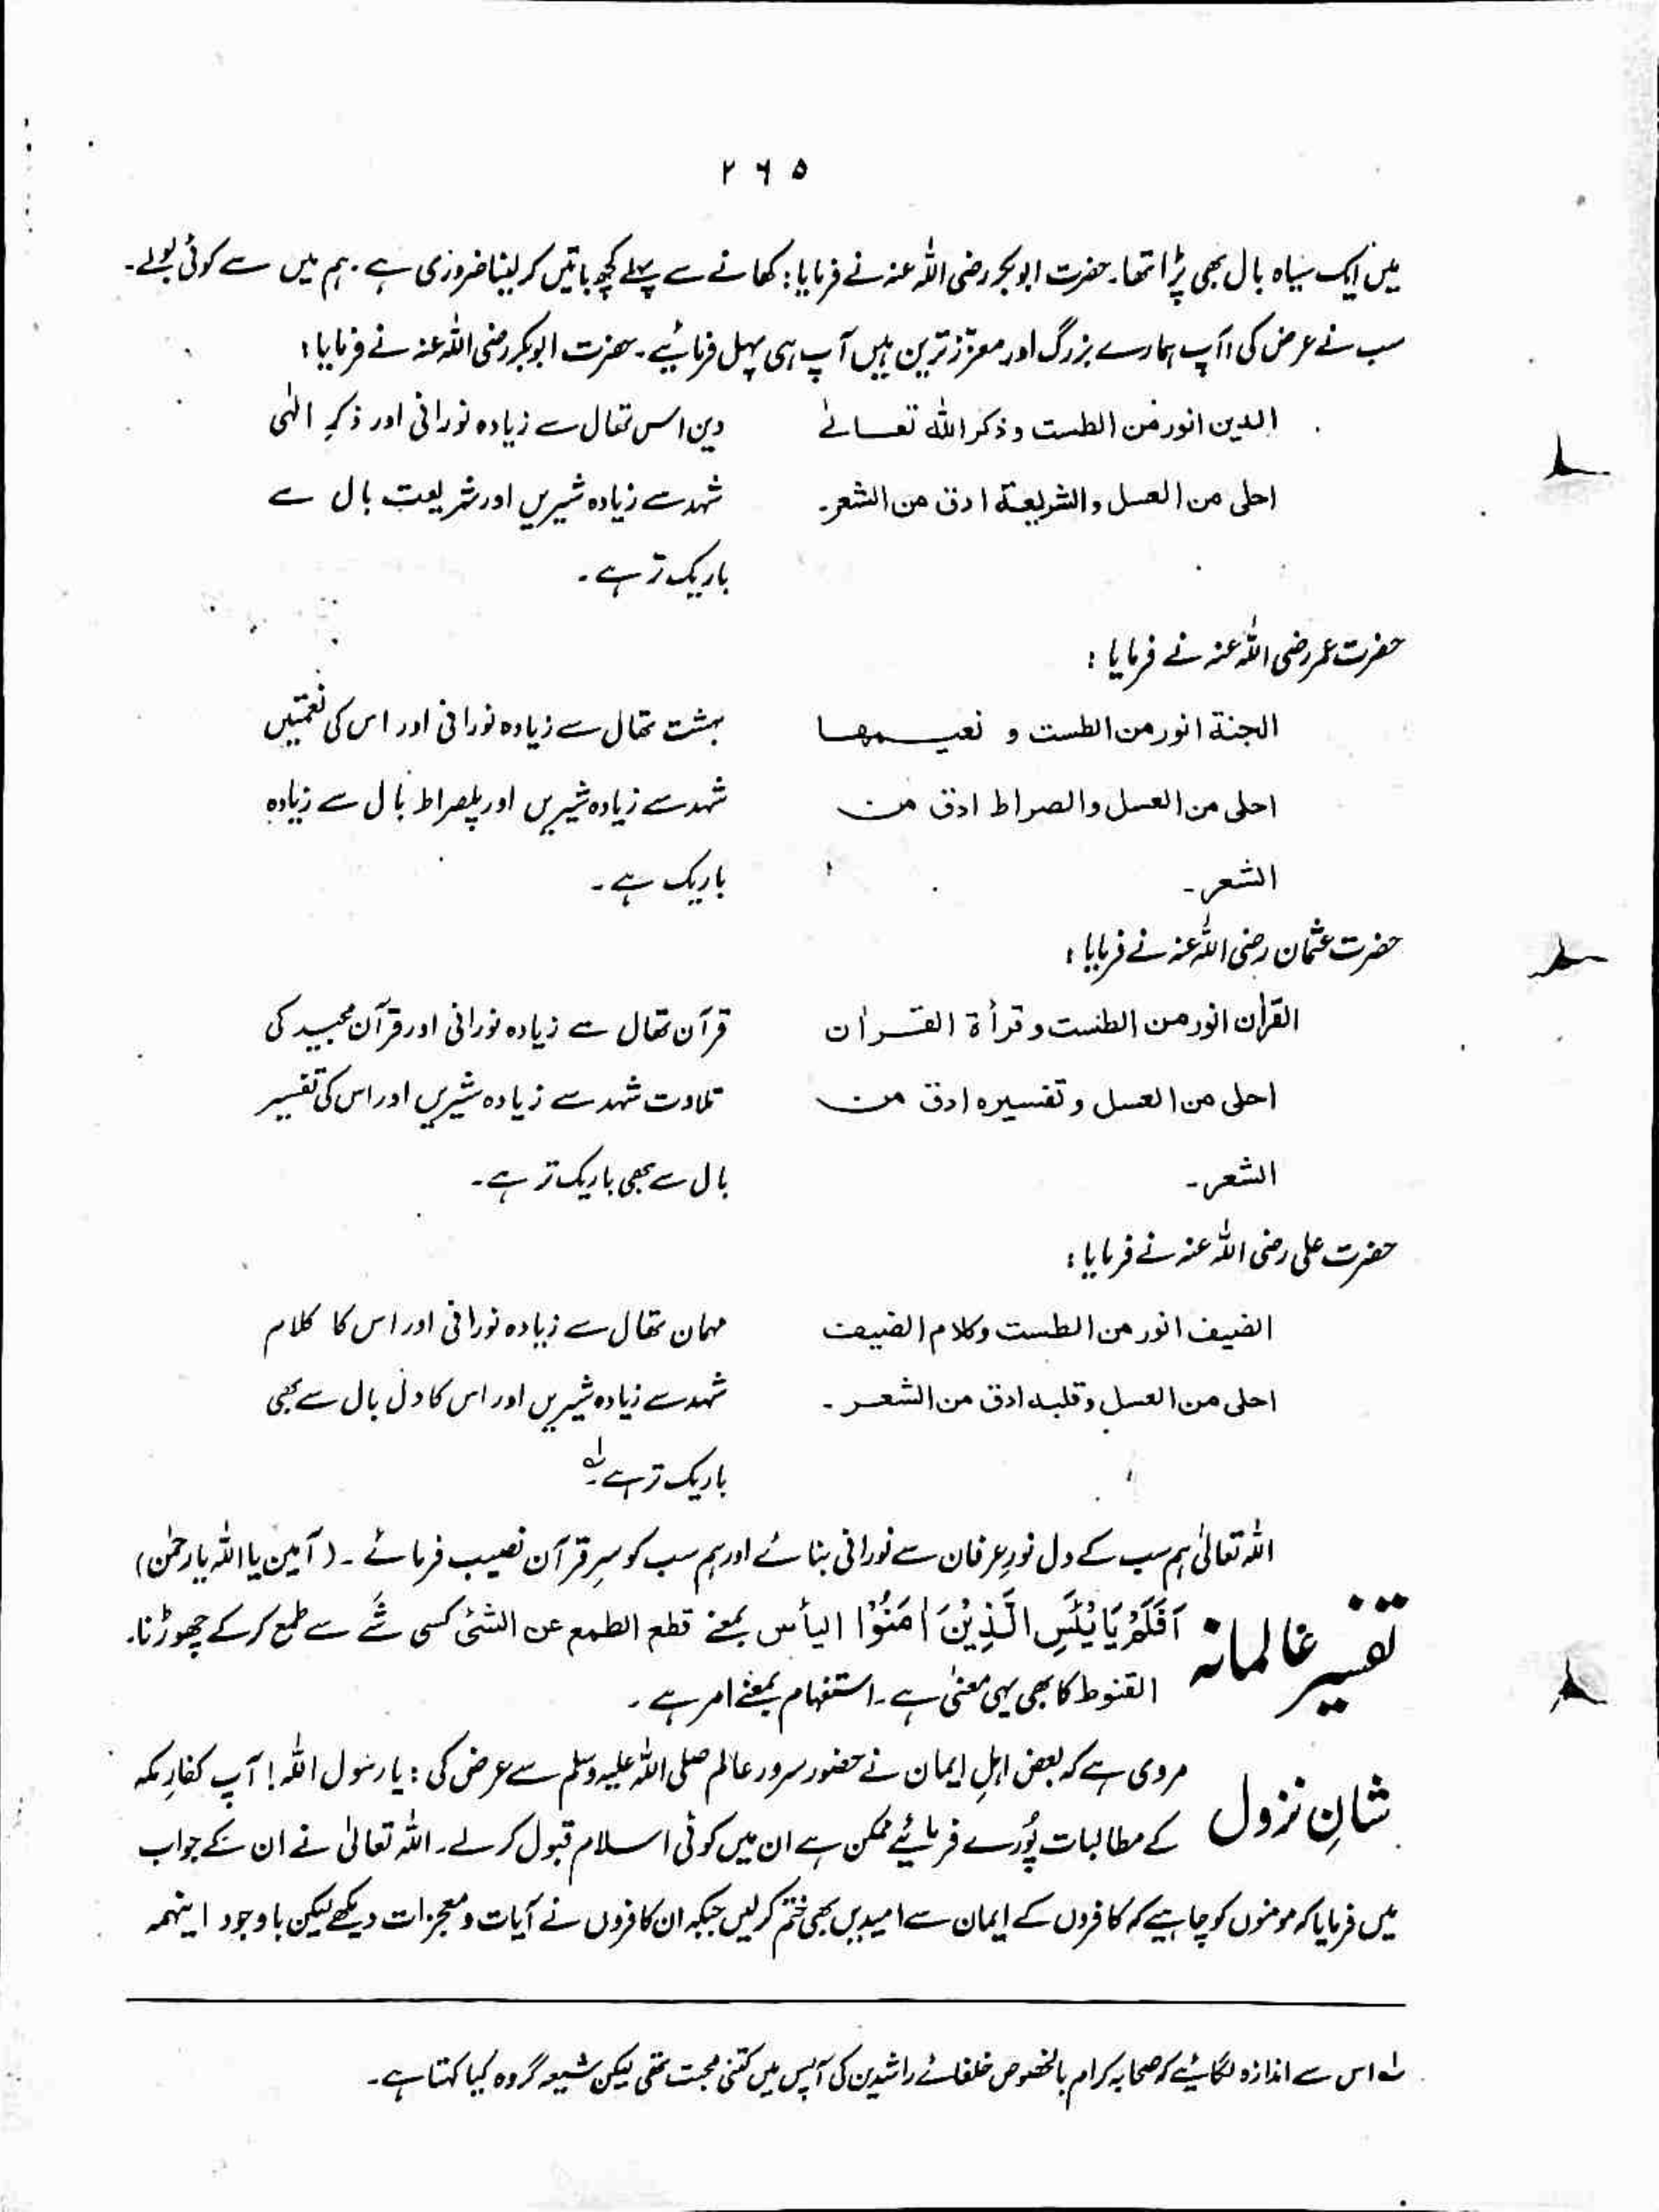 ۲۶۵
میں ایک سیاہ بال بھی پڑا تھا۔ حضرت ابوبکر رضی اللہ عنہ نے فرمایا: کھانے سے پہلے کچھ باتیں کر لینا ضروری ہے۔ ہم میں سے کوئی بولے۔
سب نے عرض کی، آپ ہمارے بزرگ اور معزز ترین ہیں آپ ہی پہل فرمائیے۔ حضرت ابوبکر رضی اللہ عنہ نے فرمایا:
الدین انور من الطست و ذکر اللہ تعالےٰ
احلی من العسل والشریعۃ ادق من الشعر۔
دین اس تھال سے زیادہ نورانی اور ذکرِ الٰہی
شہد سے زیادہ شیریں اور شریعت بال سے
باریک تر ہے۔
حضرت عمر رضی اللہ عنہ نے فرمایا:
الجنۃ انور من الطست و نعیمھا
احلی من العسل والصراط ادق من
الشعر۔
بہشت تھال سے زیادہ نورانی اور اس کی نعمتیں
شہد سے زیادہ شیریں اور پلصراط بال سے زیادہ
باریک ہے۔
حضرت عثمان رضی اللہ عنہ نے فرمایا:
القراٰن انور من الطست و قرأۃ القراٰن
احلی من العسل و تفسیرہ ادق من
الشعر۔
قرآن تھال سے زیادہ نورانی اور قرآن مجید کی
تلاوت شہد سے زیادہ شیریں اور اس کی تفسیر
بال سے بھی باریک تر ہے۔
حضرت علی رضی اللہ عنہ نے فرمایا:
الضیف انور من الطست و کلام الضیف
احلی من العسل و قلبہ ادق من الشعر۔
مہمان تھال سے زیادہ نورانی اور اس کا کلام
شہد سے زیادہ شیریں اور اس کا دل بال سے بھی
باریک تر ہے۔ لہ
اللہ تعالیٰ ہم سب کے دل نورِ عرفان سے نورانی بنائے اور ہم سب کو سِرِ قرآن نصیب فرمائے۔ (آمین یا اللہ یا رحمٰن)
تفسیر عالمانہ اَفَلَمْ يَايْئَسِ الَّذِيْنَ اٰمَنُوْٓا الیأس بمعنے قطع الطمع عن الشئ کسی شَے سے طمع کر کے چھوڑنا۔
القنوط کا بھی یہی معنیٰ ہے۔ استفہام بمعنے امر ہے۔
شانِ نزول مروی ہے کہ بعض اہلِ ایمان نے حضور سرور عالم صلی اللہ علیہ وسلم سے عرض کی: یا رسول اللہ! آپ کفارِ مکہ
کے مطالبات پُورے فرمائیے ممکن ہے ان میں کوئی اسلام قبول کر لے۔ اللہ تعالیٰ نے ان کے جواب
میں فرمایا کہ مومنوں کو چاہیے کہ کافروں کے ایمان سے امیدیں بھی ختم کر لیں جبکہ ان کافروں نے آیات و معجزات دیکھے لیکن باوجود اینہمہ
لہ اس سے اندازہ لگائیے کہ صحابہ کرام بالخصوص خلفائے راشدین کی آپس میں کتنی محبت تھی لیکن شیعہ گروہ کیا کہتا ہے۔